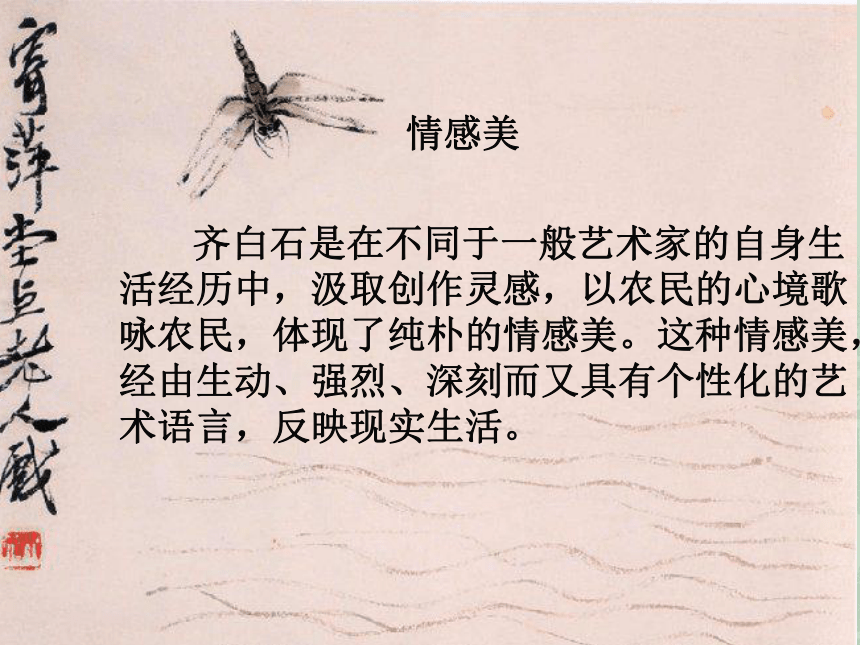 寄萍堂上老人戲
情感美
齐白石是在不同于一般艺术家的自身生
活经历中，汲取创作灵感，以农民的心境歌
咏农民，体现了纯朴的情感美。这种情感美，
经由生动、强烈、深刻而又具有个性化的艺
术语言，反映现实生活。